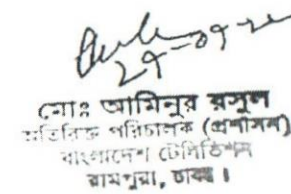 ২৭-০৭-২০
মোঃ আমিনুর রসুল
অতিরিক্ত পরিচালক (প্রশাসন)
বাংলাদেশ টেলিভিশন
রামপুরা, ঢাকা।